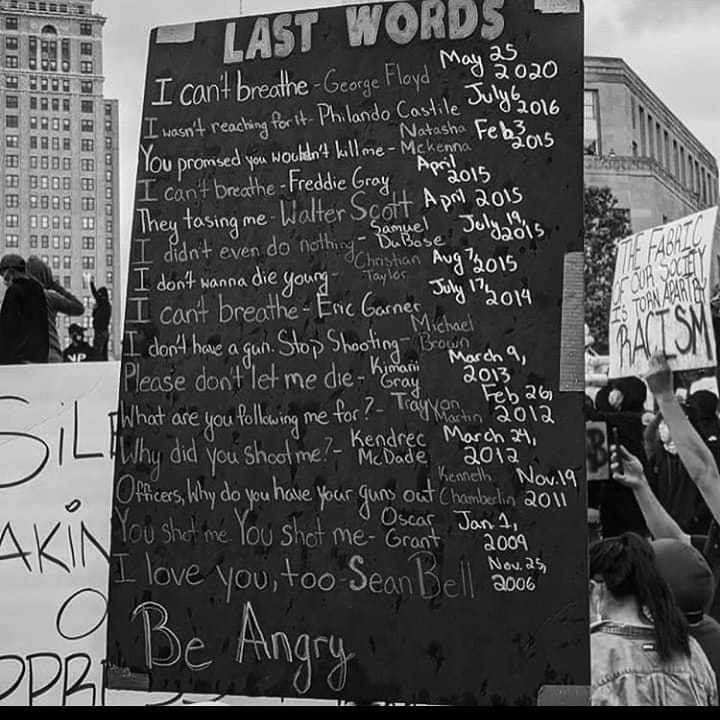 LAST WORDS
I can't breathe - George Floyd May 25 2020
I wasn't reaching for it - Philando Castile July 6 2016
You promised you wouldn't kill me - Natasha Mckenna Feb 3 2015
I can't breathe - Freddie Gray April 2015
They tasing me - Walter Scott April 2015
I didn't even do nothing - Samuel DuBose July 19, 2015
I don't wanna die young - Christian Taylor Aug 7, 2015
I can't breathe - Eric Garner July 17, 2014
I don't have a gun. Stop Shooting - Michael Brown
Please don't let me die - Kimani Gray March 9, 2013
What are you following me for? - Trayvon Martin Feb 26, 2012
Why did you shoot me? - Kendrec McDade March 24, 2012
Officers, Why do you have your guns out Kenneth Chamberlin Nov. 19 2011
You shot me. You shot me - Oscar Grant Jan 1, 2009
I love you, too - Sean Bell Nov. 25, 2006
Be Angry
THE FABRIC
OF OUR SOCIETY
IS TORN APART BY
RACISM
SIL
AKIN
O
PPR